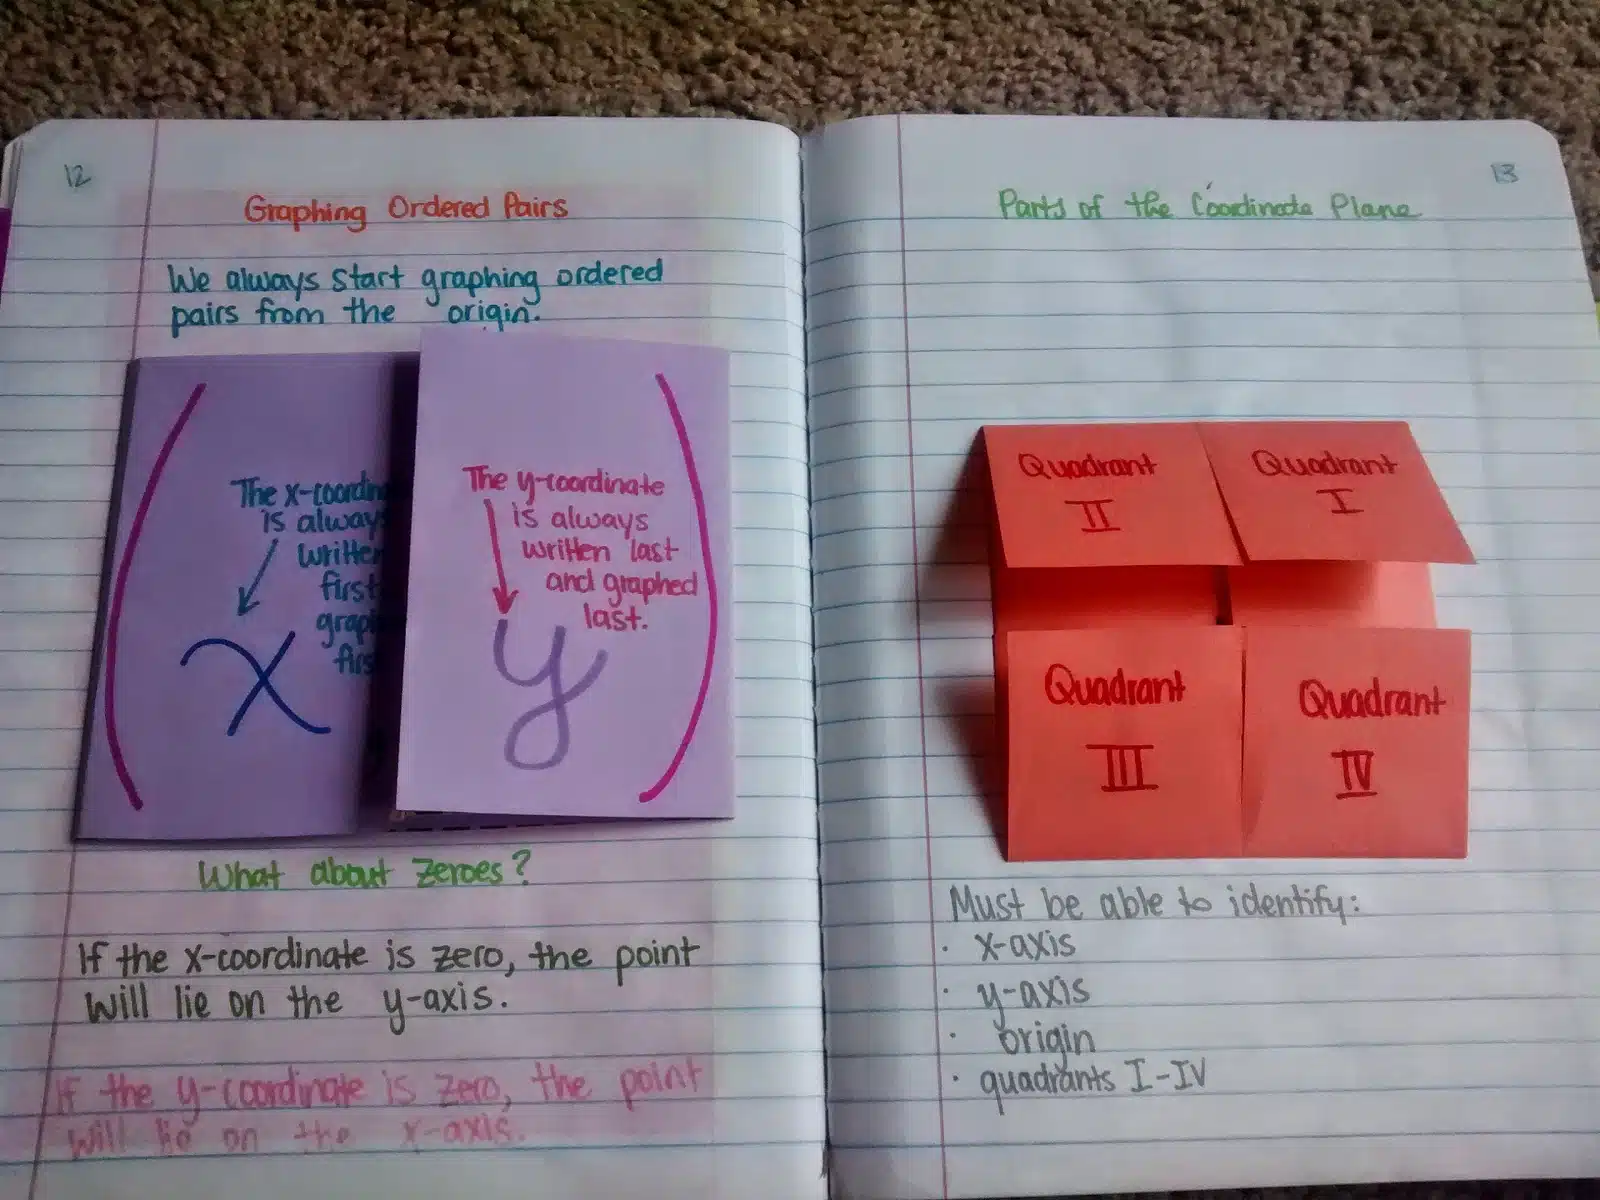 12
Graphing Ordered Pairs
We always start graphing ordered
pairs from the origin.
(
The x-coordin
is always
written
first
grap
firs
x
The y-coordinate
is always
written last
and graphed
last.
y
)
What about zeroes?
If the x-coordinate is zero, the point
will lie on the y-axis.
If the y-coordinate is zero, the point
will lie on the x-axis.
13
Parts of the Coordinate Plane
Quadrant
II
Quadrant
I
Quadrant
III
Quadrant
IV
Must be able to identify:
· x-axis
· y-axis
· origin
· quadrants I-IV